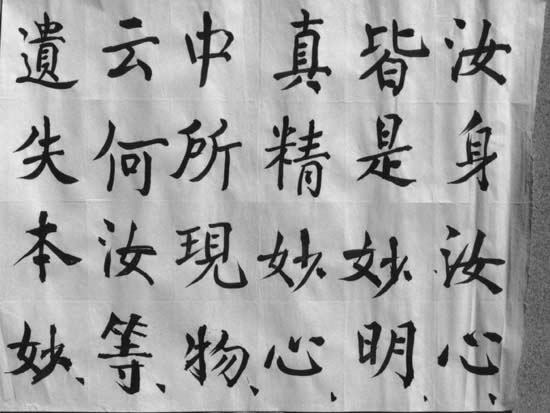 汝身汝心、
皆是妙明
真精妙心、
中所現物、
云何汝等、
遺失本妙、